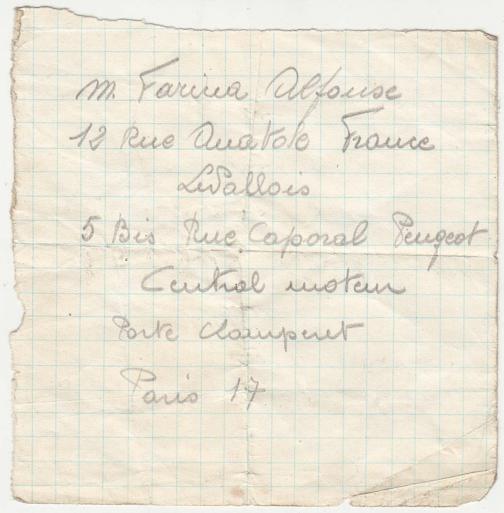 M. Farina Alfonse
12 Rue Anatole France
Levallois
5 Bis Rue Caporal Peugeot
Central moteur
Porte Champeret
Paris 17